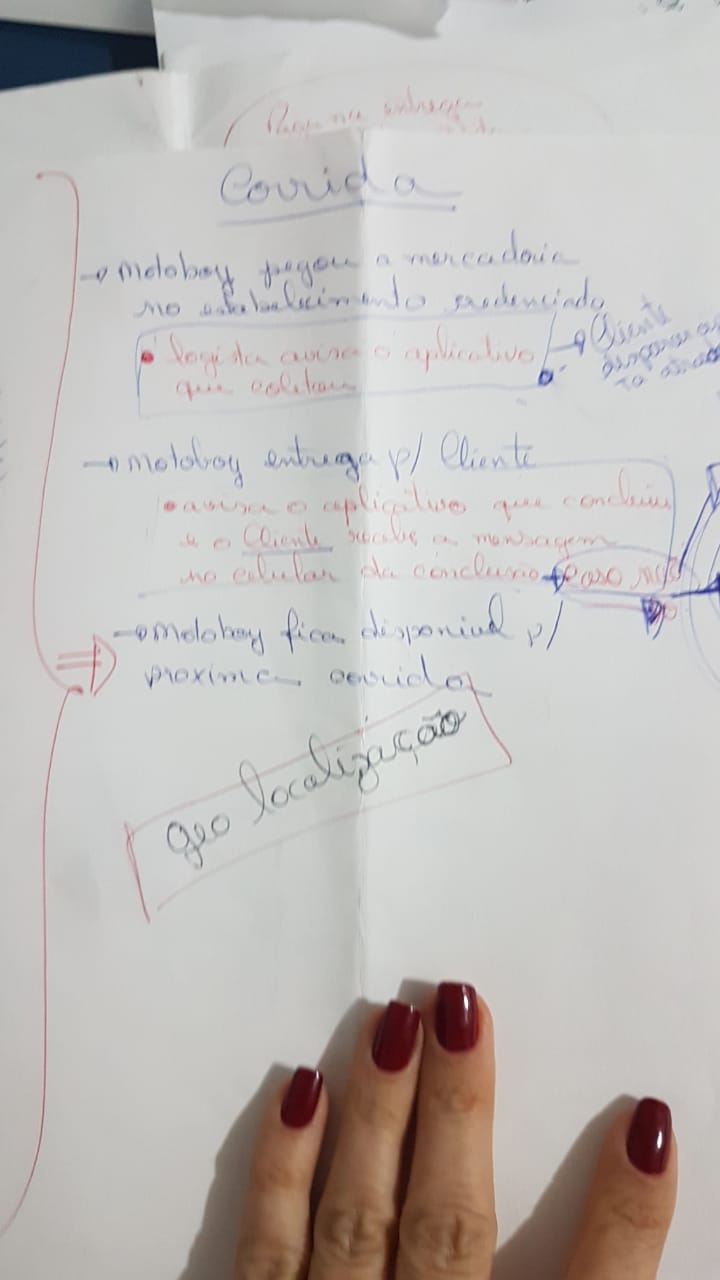 entrega
Corrida
→ Motoboy pegou a mercadoria
no estabelecimento credenciado
• logista avisa o aplicativo
que coletou
→ Cliente
→ Motoboy entrega p/ Cliente
• avisa o aplicativo que concluiu
e o Cliente recebe a mensagem
no celular da conclusão → caso não
⇒ → Motoboy fica disponivel p/
proxima corrida
geo localização